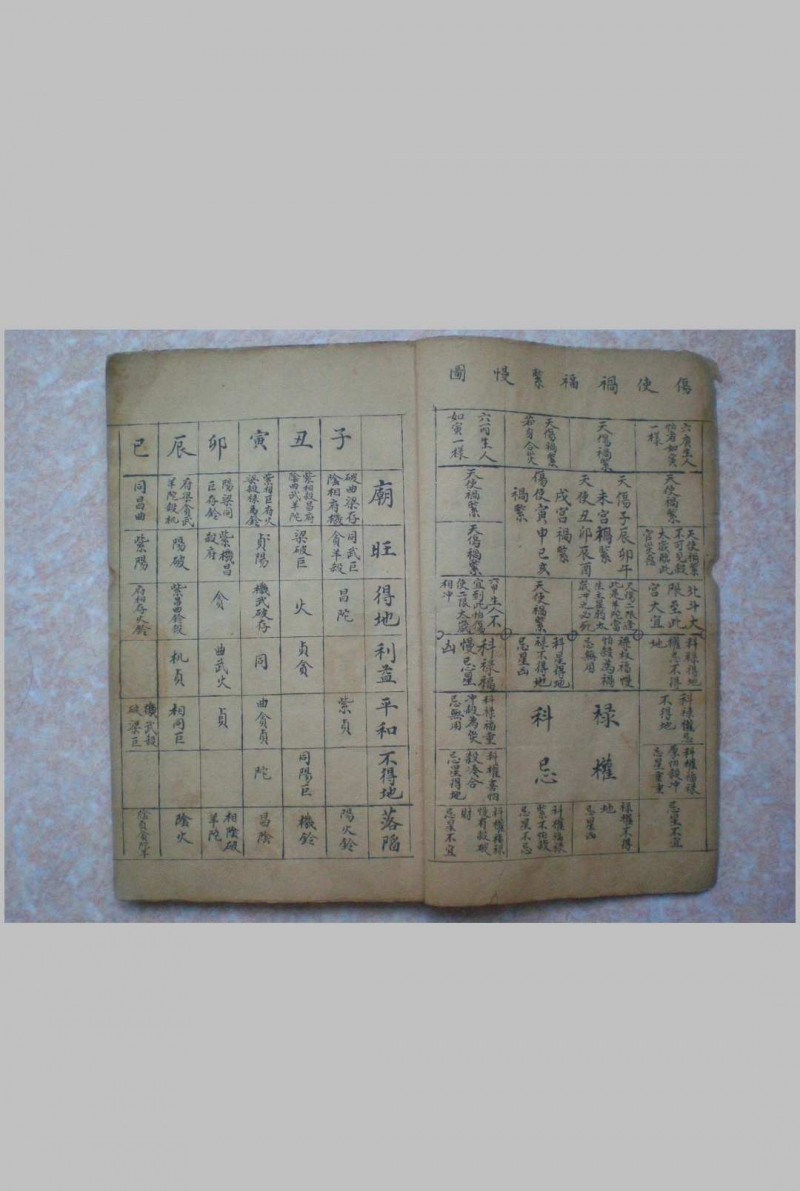 傷使禍福緊慢圖
六庚生人
怕酉如寅
一樣
天傷禍緊
天傷禍緊
六丙生人
如寅一樣
天使禍緊
天使禍緊
不可見殺
天傷子辰卯斗
未宮禍緊
天使丑卯辰酉
戌宮禍緊
傷使寅申巳亥
禍緊
天使禍緊
天傷禍緊
北斗大
限至此
宮大宜
天使禍緊
使二限太歲
相冲
科祿得地
權忌不得
地
科忌得地
祿不得地
忌星凶
科祿福
慢忌星
凶
科祿權忌
不得地
科權福祿
忌星重重
祿權
科忌
科祿福重
冲殺為災
忌無用
科權喜怕
殺湊合
忌星得地
忌星不宜
祿權不得
地
忌星凶
科權福祿
緊不怕殺
忌星不忌
科權福祿
財
忌星不宜
廟
旺
得地
利益
平和
不得地
落陷
子
破曲梁存
陰相府機
同武巨
貪羊殺
昌陀
紫貞
陽火鈴
丑
紫相殺昌府
陰曲武羊陀
梁破巨
火
貞貪
同陽巨
機鈴
寅
紫相巨府火
貞陽
機武破存
同
曲貪貞
陀
昌陰
卯
陽梁同
巨存鈴
紫機昌
殺府
貪
曲武火
貞
相陰破
羊陀
辰
府梁貪武
羊陀殺机
陽破
紫昌曲鈴殺
机貞
相同巨
陰火
巳
同昌曲
紫陽
府相存火鈴
機武殺
破梁巨